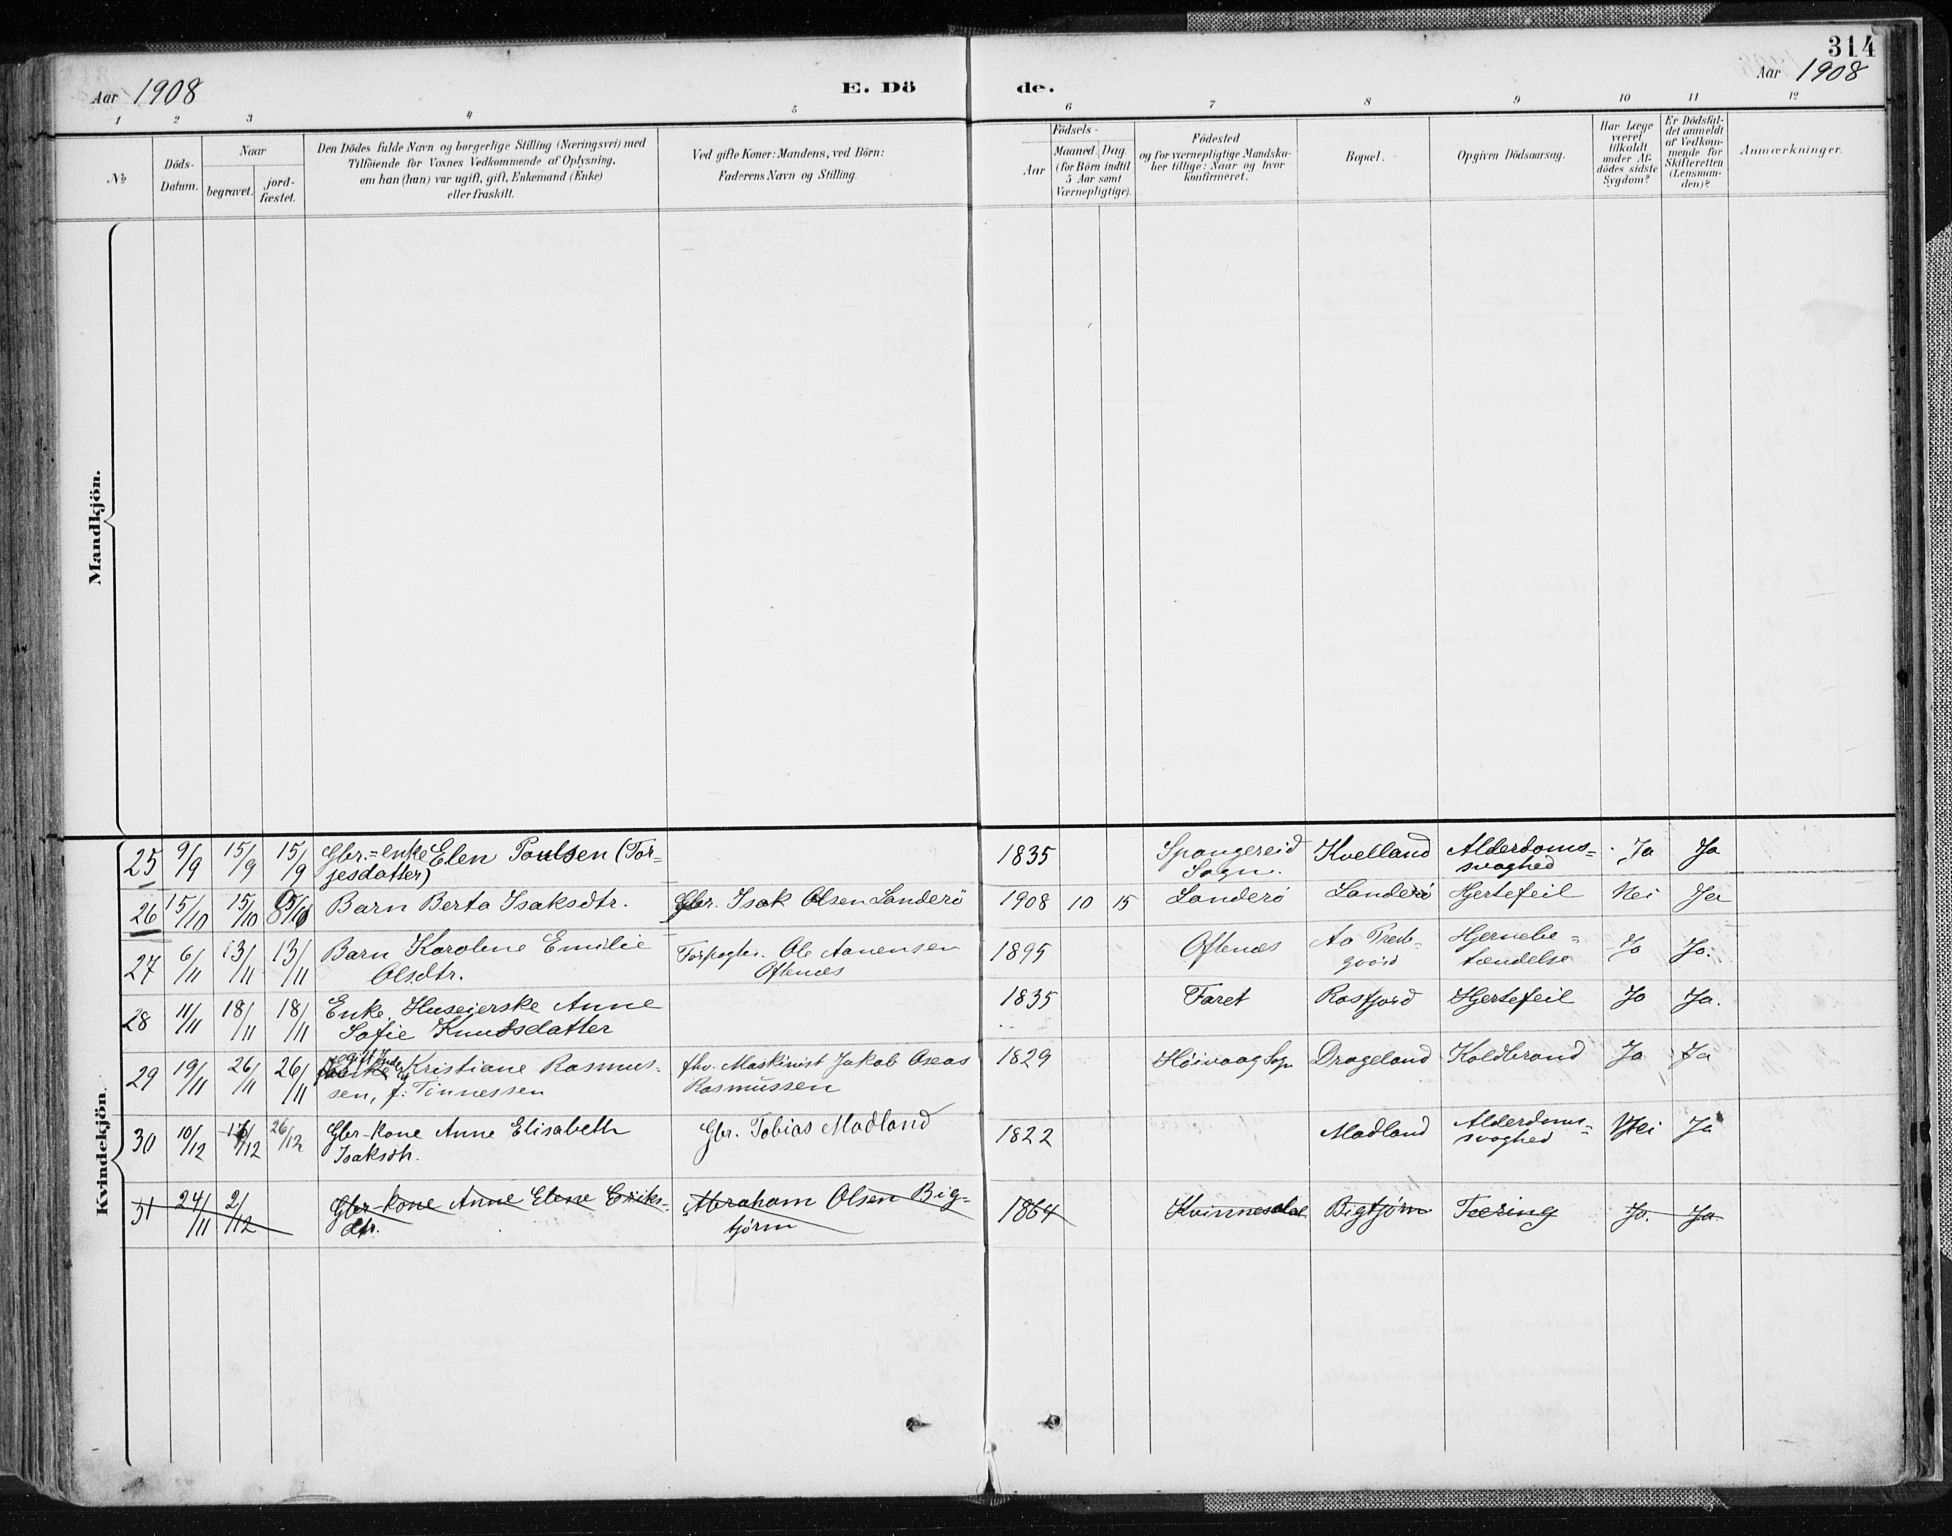 314
Aar 1908
E. Dö
de.
Aar 1908
1 2 3 4 5
6 7 8 9 10 11 12
No
Döds-
Datum.
Naar
begravet.
jord-
fæstet.
Den Dödes fulde Navn og borgerlige Stilling (Næringsvei) med
Tilföiende for Voxnes Vedkommende af Oplysning,
om han (hun) var ugift, gift, Enkemand (Enke)
eller fraskilt.
Ved gifte Koner: Mandens, ved Börn:
Faderens Navn og Stilling.
Födsels-
Aar
Maaned Dag
(for Börn indtil
5 Aar samt
Værnepligtige).
Födested
og for værnepligtige Mandska-
ber tillige: Naar og hvor
konfirmeret.
Bopæl.
Opgiven Dödsaarsag.
Har Læge
været
tilkaldt
under Af-
dödes sidste
Sygdom?
Er Dödsfal-
det anmeldt
af Vedkom-
mende for
Skifteretten
(Lensman-
den)?
Anmærkninger.
Mandkjön.
Kvindekjön.
25 9/9 15/9 15/9 Gbr.=enke Elen Poulsen (Tor= 1835 Spangereid Kvelland Alderdoms= Ja Ja
jesdatter) Sogn. svaghed
26 15/10 15/10 Barn Berta Isaksdtr. Gbr. Isak Olsen Landerö 1908 10 15 Landerö Landerö Hjertefeil Nei Ja
27 6/11 13/11 13/11 Barn Karoline Emilie Ole Aanensen 1895 Oftenæs Hjernebe= Ja Ja.
Olsdtr. Oftenæs tændelse
28 11/11 18/11 18/11 Enke, Huseierske Anne 1835 Faret Rosfjord Hjertefeil Ja Ja.
Sofie Knudsdatter
29 19/11 26/11 26/11 Kristiane Rasmus- fhv. Maskinist Jakob Oseas 1829 Höivaag Sogn Drageland Koldbrand Ja Ja
sen, f. Tönnessen Rasmussen
30 10/12 /12 26/12 Gbr-kone Anne Elisabeth Gbr. Tobias Madland 1822 Madland Alderdoms= Nei Ja
Isaksdtr. svaghed
31 24/11 2/12 Gbr-kone Anne Elene Eriks- Abraham Olsen Big= 1864 Kvinnesdal Bigtjørn Tæring Ja. Ja
dtr. tjørn